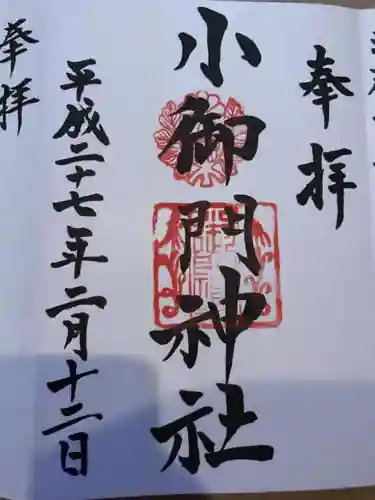 奉拝
小御門神社
平成二十七年二月十二日
奉拝